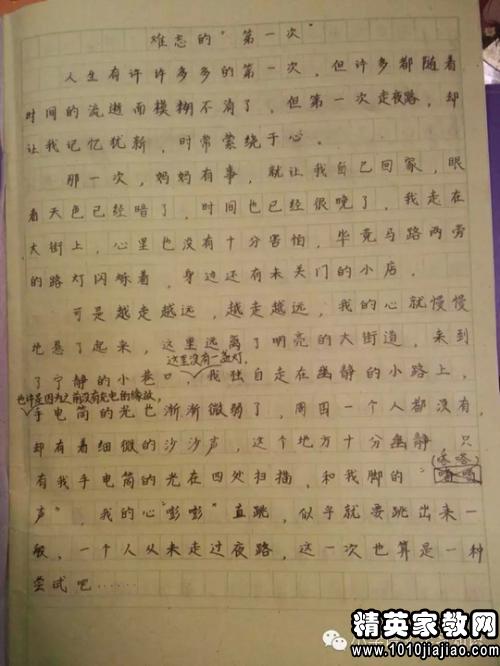 难忘的“第一次”
人生有许许多多的第一次，但许多都随着
时间的流逝而模糊不清了，但第一次走夜路，却
让我记忆犹新，时常萦绕于心。
那一次，妈妈有事，就让我自己回家，眼
看天色已经暗了，时间也已经很晚了，我走在
大街上，心里也没有十分害怕，毕竟马路两旁
的路灯闪烁着，身边还有未关门的小店。
可是越走越远，越走越远，我的心就慢慢
地悬了起来，这里远离了明亮的大街道，来到
这里没有一盏灯，
了宁静的小巷口、我独自走在幽静的小路上，
也许是因为之前没有充电的缘故，
手电筒的光也渐渐微弱了，周围一个人都没有，
却有着细微的沙沙声，这个地方十分幽静，只
(嗒嗒)
有我手电筒的光在四处扫描，和我脚的“
声”，我的心“嘭嘭”直跳，似乎就要跳出来一
般，一个人从未走过夜路，这一次也算是一种
尝试吧……
精英家教网
www.1010jiajiao.com